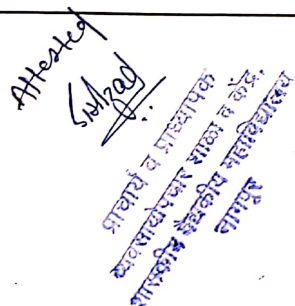 Attested
प्राचार्य व प्राध्यापक
व्यवसायोपचार शाळा व केंद्र,
शासकीय वैद्यकीय महाविद्यालय
नागपूर